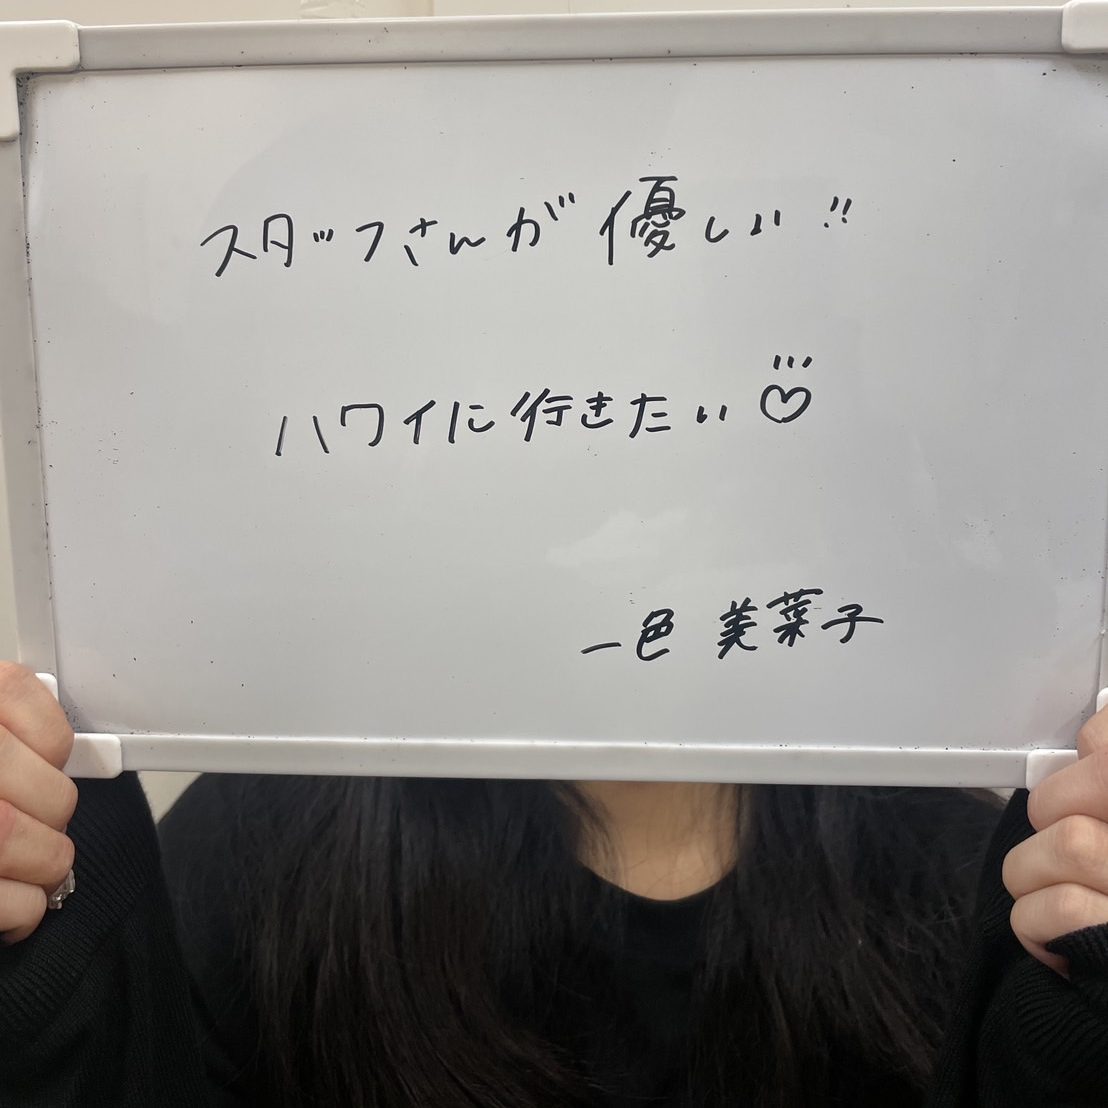 スタッフさんが優しい!!
ハワイに行きたい♡
一色 美菜子